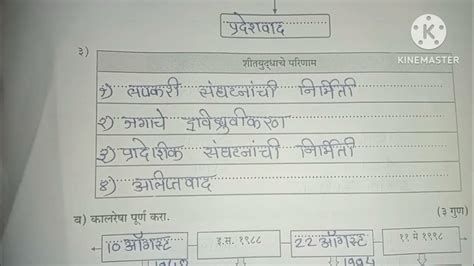 प्रदेशवाद
KINEMASTER
३)
शीतयुद्धाचे परिणाम
१) लष्करी संघटनांची निर्मिती
२) जगाचे द्विध्रुवीकरण
३) प्रादेशिक संघटनांची निर्मिती
४) अलिप्तवाद
ब) कालरेषा पूर्ण करा. (३ गुण)
10 ऑगस्ट इ.स. १९८८ 22 ऑगस्ट ११ मे १९९८